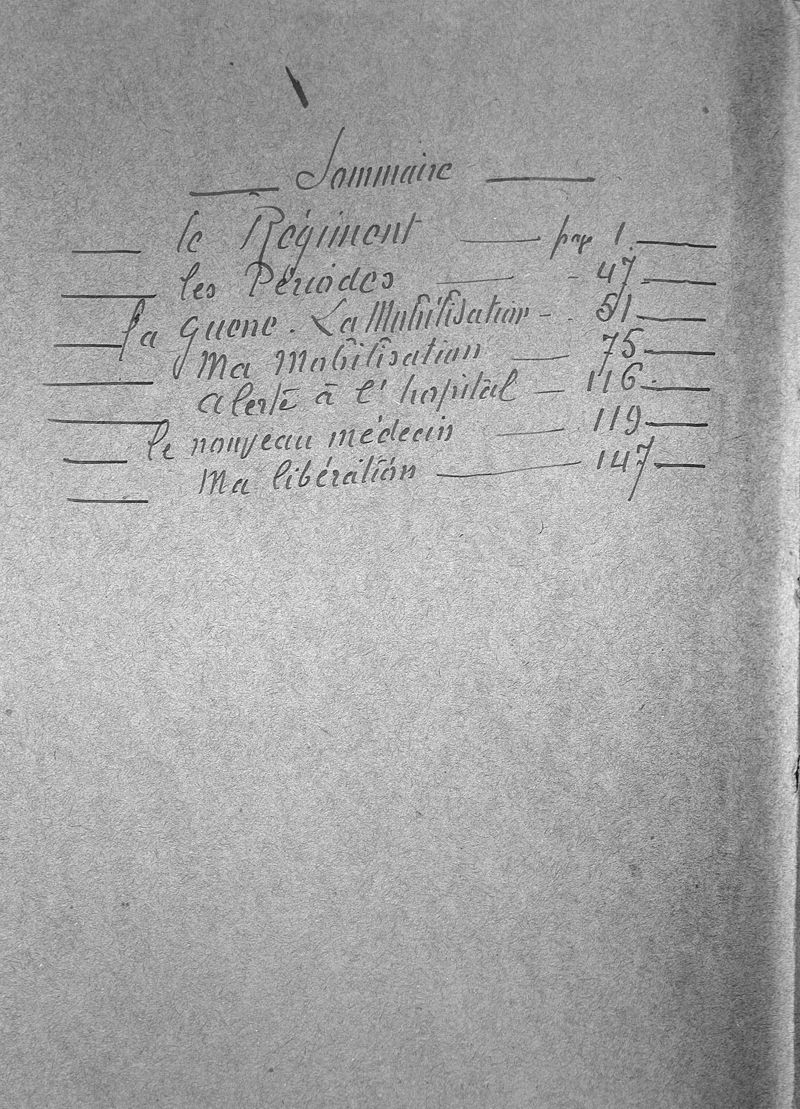 Sommaire
le Régiment — page 1. —
les Périodes — - 47 —
la guerre. La Mobilisation - . 51. —
Ma Mobilisation — 75 —
alerte à l'hopital — 116. —
le nouveau médecin — 119 —
Ma libération — 147 —